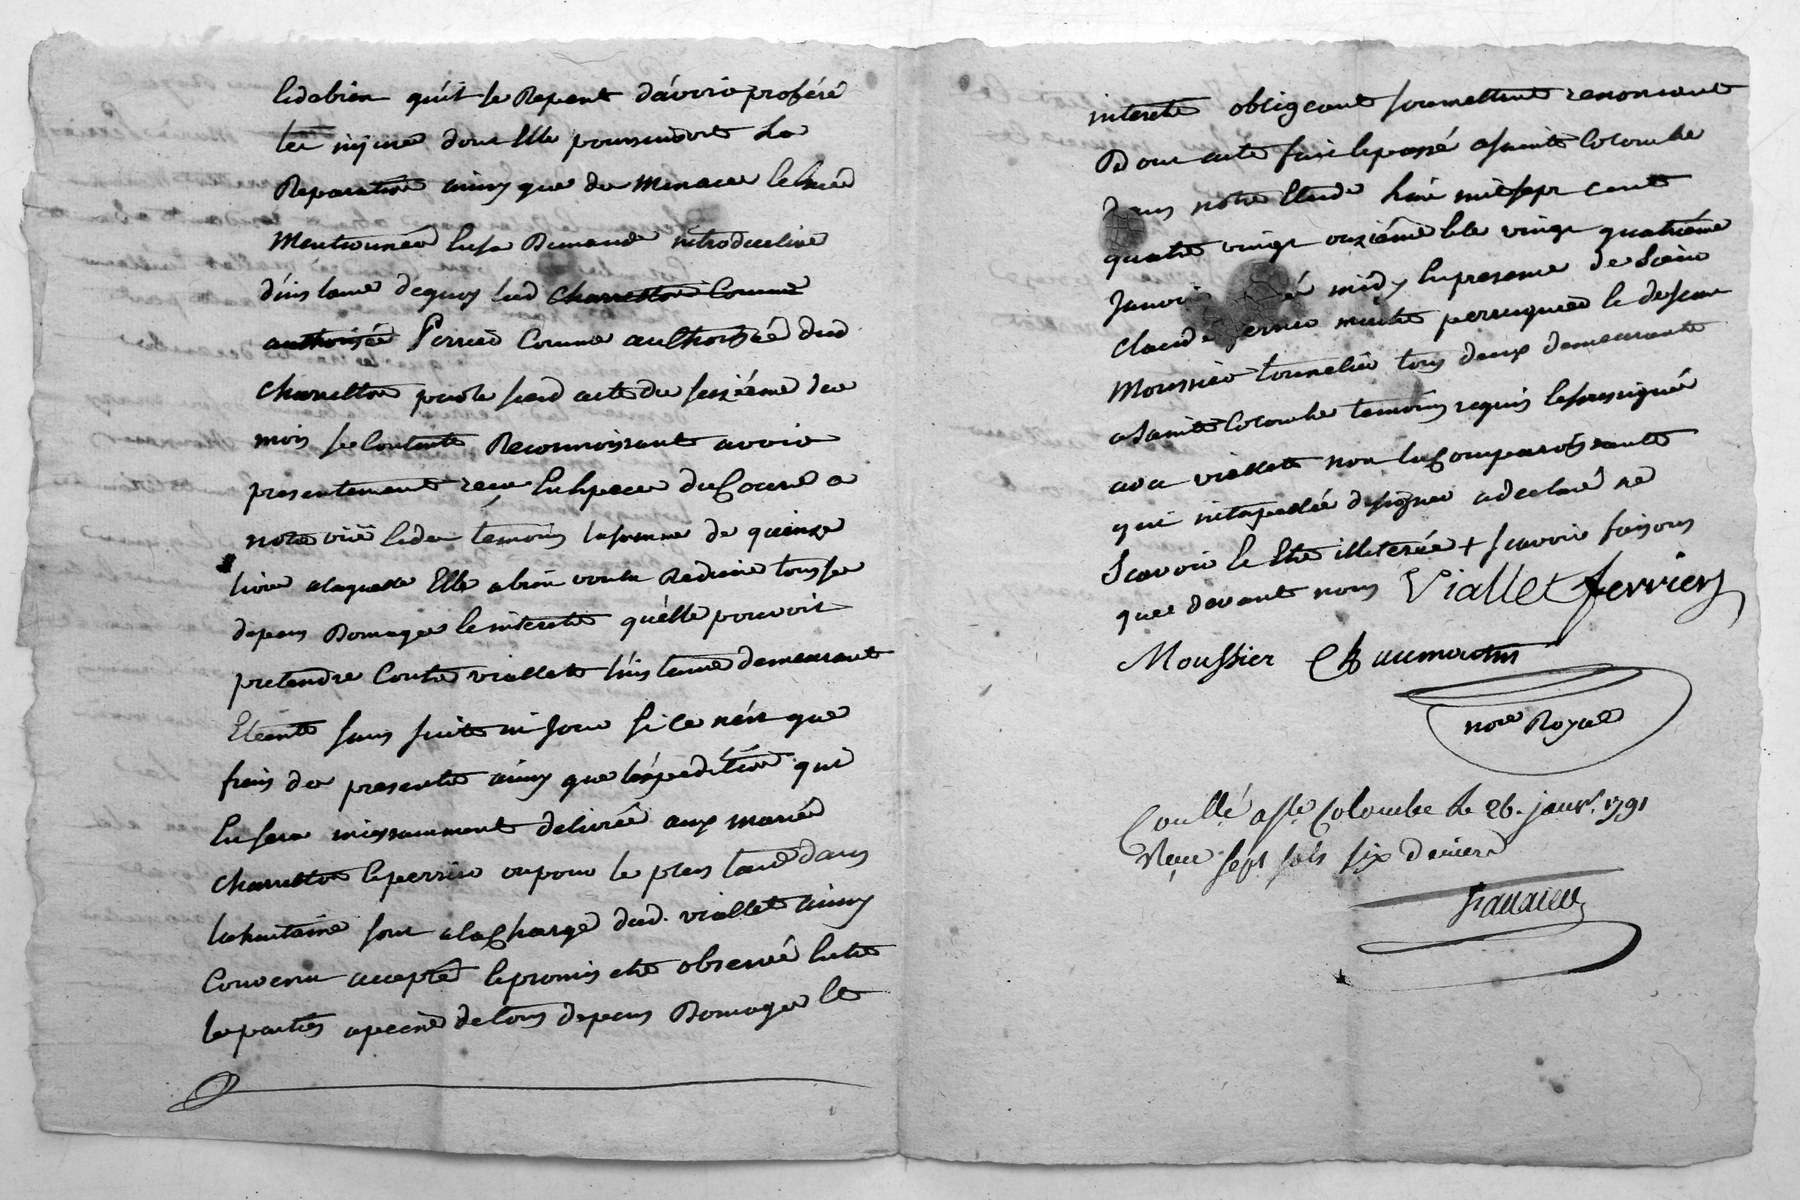 et de bien qu'il se Repent d'avoir proféré
les injures dont Elle poursuivoit La
Reparation ainsy que des menaces
mentionnées en sa Demande introductive
d'instance de quoy lad Charreton Comme
authorisée Perrier Comme authorisée dud
Charretton par le susd acte du seizième du
mois se Contente Reconnoissant avoir
presentement reçu En Espece du Cours a
notre vüe et des temoins la somme de quinze
livres a laquelle Elle a bien voulu Reduire tous ses
depens Domages et interets qu'elle pouvoit
pretendre Contre viallet L'instance demeurant
Eteinte sans suite ni jour si ce n'est que
frais des presentes ainsy que l'expedition qui
En sera incessamment delivrée aux mariés
Charretton et perrier ou pour le plus tard dans
la huitaine sont a la Charge dud. viallet ainsy
Convenu accepté et promis etre observé Entre
les parties a peine de tous depens Domages et
interets obligeant soumettant renonceant
Dont acte fait et passé a sainte Colombe
Dans notre Etude L'an mil sept cent
quatre vingt onzième et le vingt quatrième
Janvier midy En presence de Sieur
Claude ferrier maitre perruquier et de Jean
Moussier tonnelier tous deux demeurants
a Sainte Colombe temoins requis et soussignés
avec viallet non la Comparoissante
qui intepellée de signer a declaré ne
Scavoir et Etre illiterée + scavoir faisons
que devant nous Viallet ferrier
Moussier Chaumartin
nore Royal
Conllé a Ste Colombe le 26. janvr. 1791
Reçu sept sols six deniers